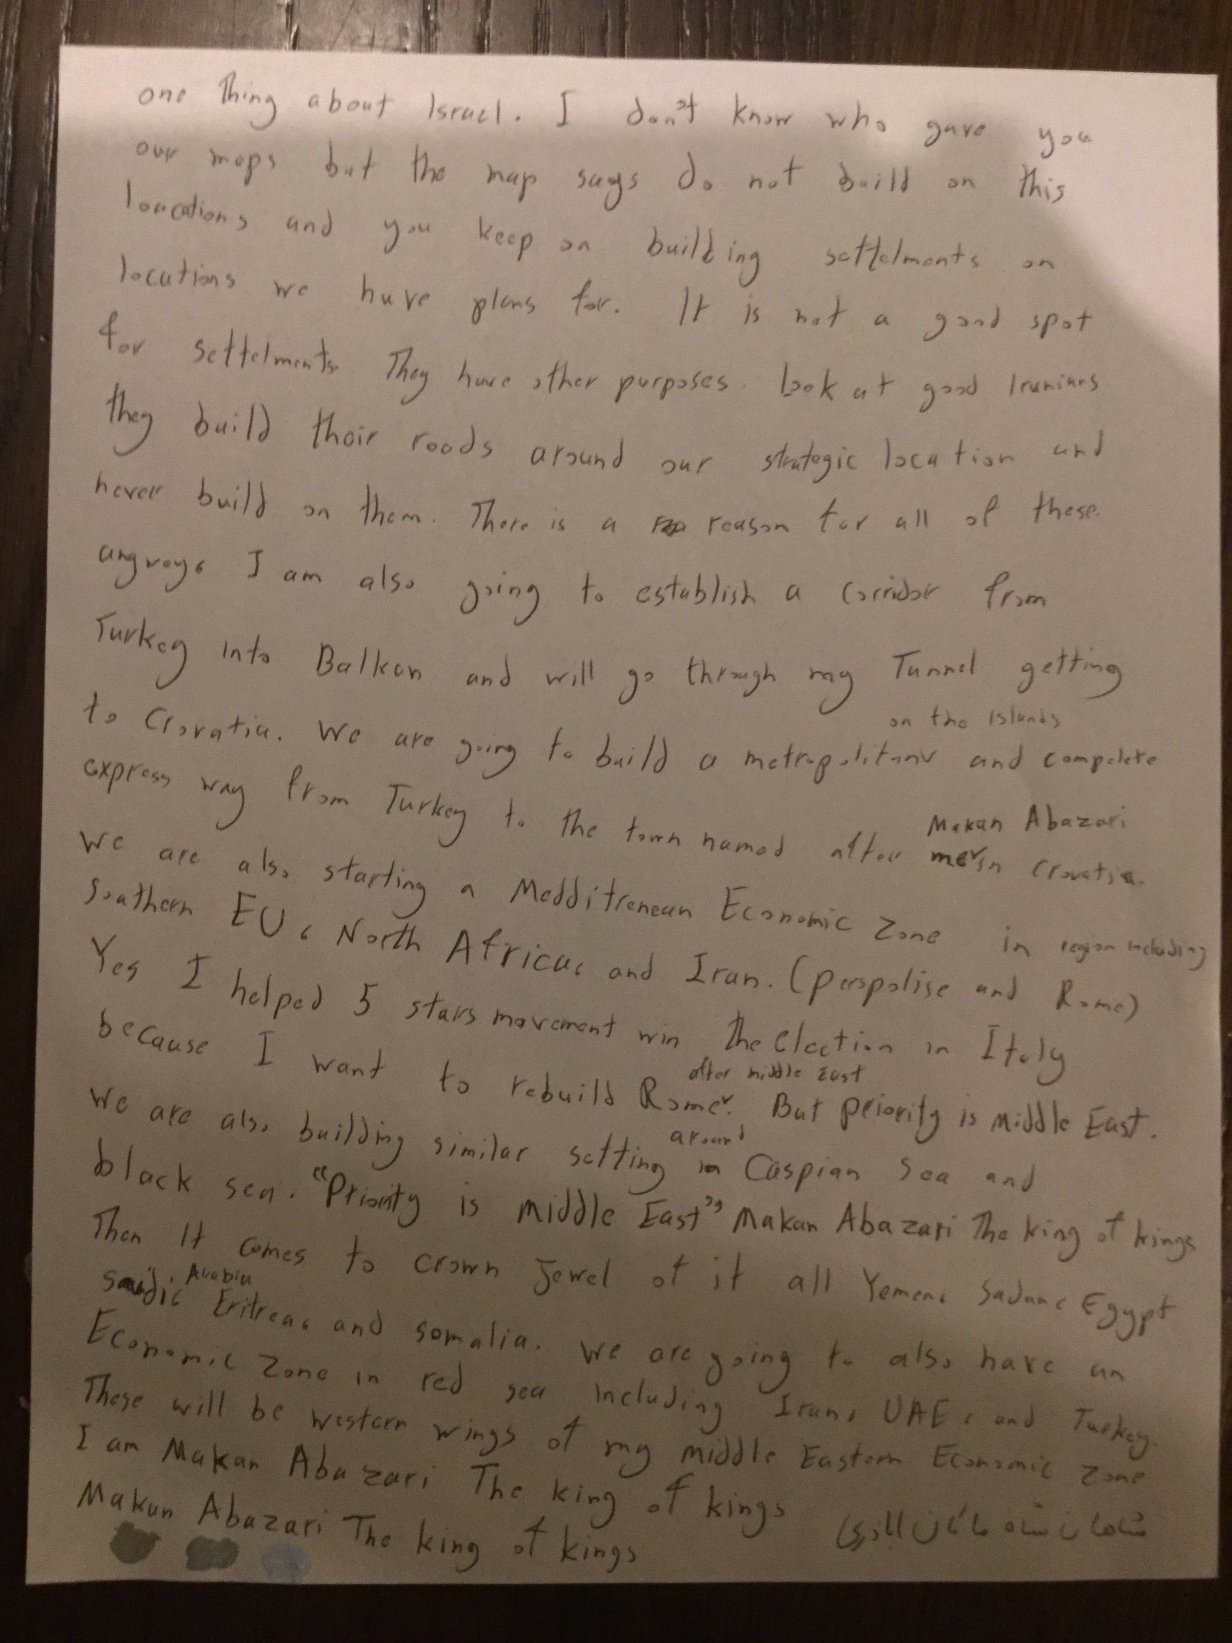 one Thing about Israel. I don't know who gave you
our maps but the map says do not build on this
loacations and you keep on building settelments on
locations we have plans for. It is not a good spot
for settelments. They have other purposes. Look at good Iranians
they build their roads around our strategic location and
never build on them. There is a reason for all of these.
anyways I am also going to establish a corridor from
Turkey into Balkan and will go through my Tunnel getting
on the Islands
to Croratia. We are going to build a metrapolitanv and compelete
express way from Turkey to the town named after me in Crovatia.
Makan Abazari
We are also starting a Medditrenean Economic Zone in region including
Southern EU, North Africa, and Iran. (perspolise and Rome)
Yes I helped 5 stars movement win the election in Italy
because I want to rebuild Rome. But priority is Middle East.
after middle East
We are also building similar setting around Caspian Sea and
black sea. "Priority is middle East" Makan Abazari The king of kings
Then It comes to crown Jewel of it all Yemen, Sadun, Egypt
Saudi Arabia, Eritrea, and somalia. We are going to also have an
Economic Zone in red sea including Iran, UAE, and Turkey.
These will be western wings of my middle Eastern Economic Zone
I am Makan Abazari The king of kings
Makan Abazari The king of kings شاهان شاه ماکان اباذری